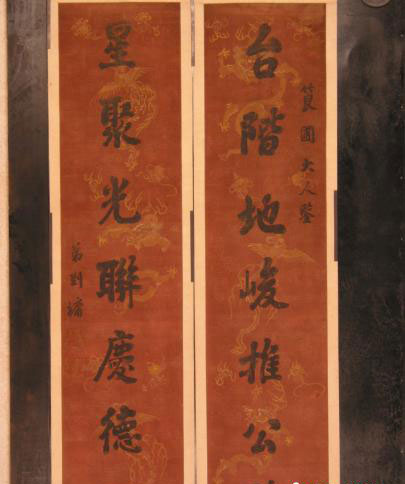 台階地峻推公
筤圃大人鑒
星聚光聯慶德
弟劉墉